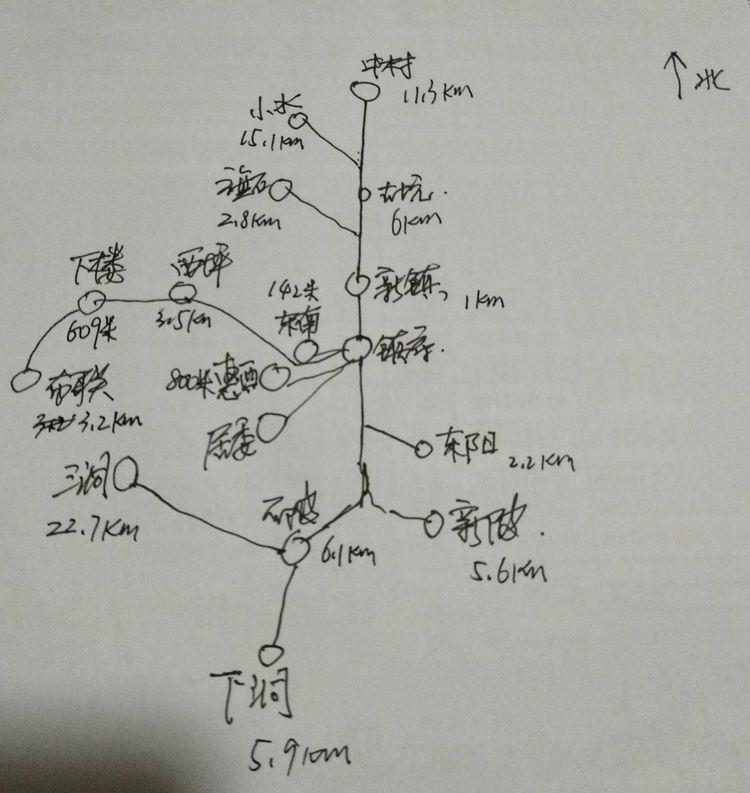 中村
11.3km
北
小水
15.1km
古坑.
6km
2.8km
下楼
西坪
142米
新镇
1km
609米
3.5km
东南
镇府.
800米惠西
布联
3.2km
居委
东阳
2.2km
三涧
22.7km
石陂
6.1km
新陂.
5.6km
下涧
5.9km